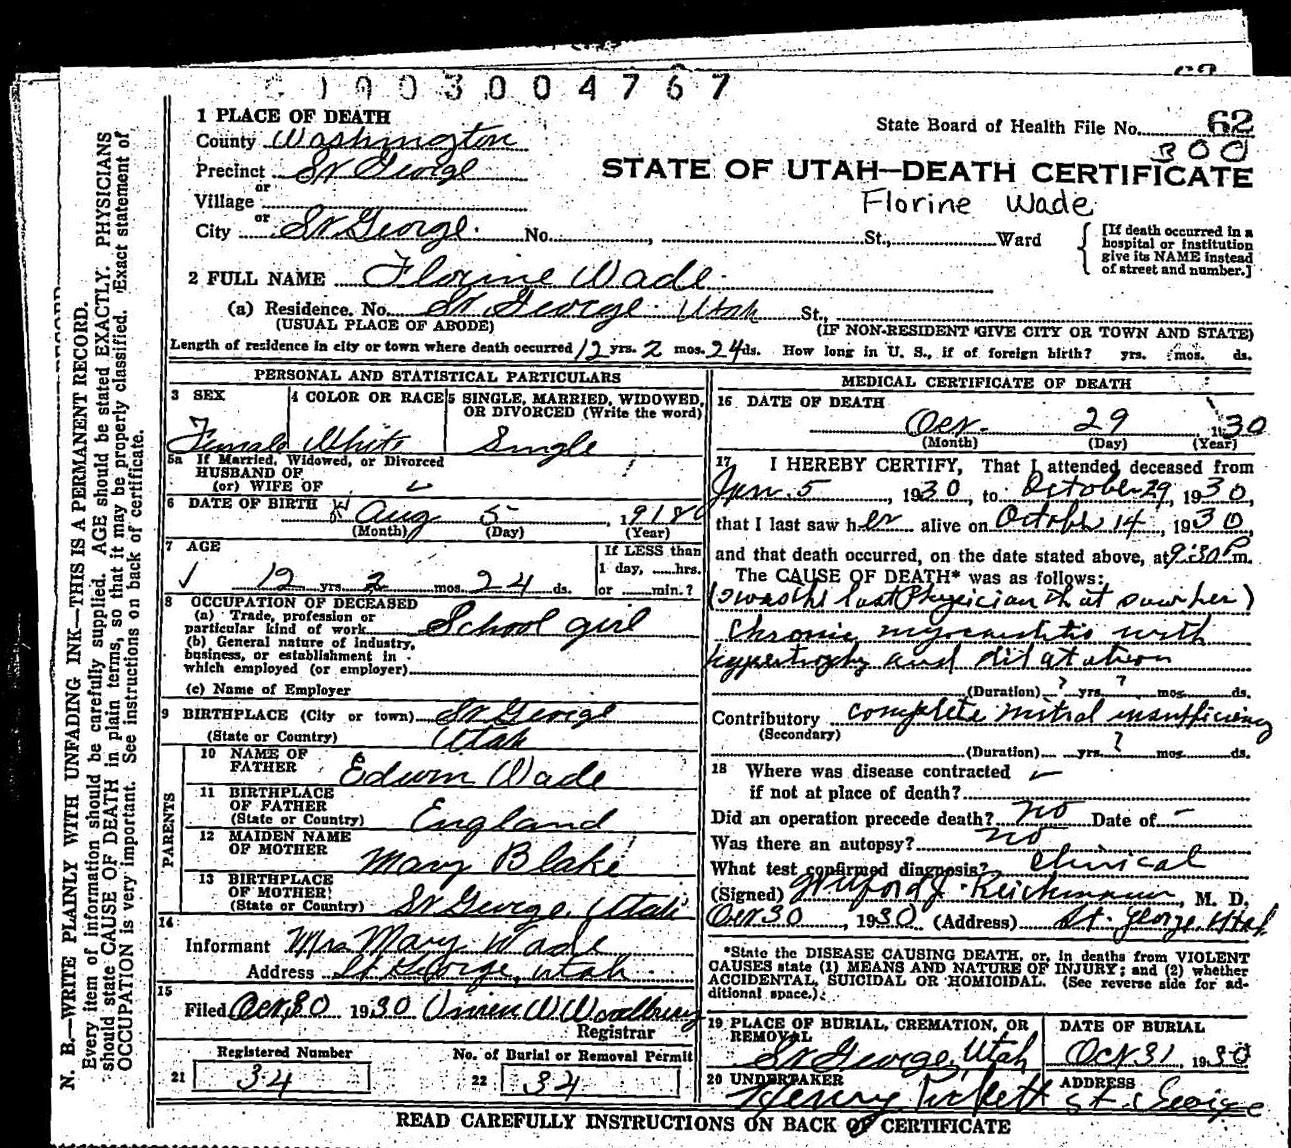 1903004767
62
1 PLACE OF DEATH
State Board of Health File No. 62
300
County Washington
Precinct St George
STATE OF UTAH—DEATH CERTIFICATE
or
Village
Florine Wade
or
City St George. No. , St., Ward
[If death occurred in a hospital or institution give its NAME instead of street and number.]
2 FULL NAME Florine Wade.
(a) Residence. No. St George Utah St.,
(USUAL PLACE OF ABODE) (IF NON-RESIDENT GIVE CITY OR TOWN AND STATE)
Length of residence in city or town where death occurred 12 yrs. 2 mos. 24 ds. How long in U. S., if of foreign birth? yrs. mos. ds.
PERSONAL AND STATISTICAL PARTICULARS
3 SEX
4 COLOR OR RACE
5 SINGLE, MARRIED, WIDOWED, OR DIVORCED (Write the word)
Female White Single
5a If Married, Widowed, or Divorced
HUSBAND OF
(or) WIFE OF
6 DATE OF BIRTH Aug 5 , 1918
(Month) (Day) (Year)
7 AGE
If LESS than
1 day, hrs.
12 yrs. 2 mos. 24 ds. or min.?
8 OCCUPATION OF DECEASED
(a) Trade, profession or
particular kind of work School girl
(b) General nature of industry,
business, or establishment in
which employed (or employer)
(c) Name of Employer
9 BIRTHPLACE (City or town) St George
(State or Country) Utah
PARENTS
10 NAME OF
FATHER Edwin Wade
11 BIRTHPLACE
OF FATHER
(State or Country) England
12 MAIDEN NAME
OF MOTHER Mary Blake
13 BIRTHPLACE
OF MOTHER
(State or Country) St George, Utah
14
Informant Mrs Mary Wade
Address St George, Utah.
15
Filed Oct, 30 1930 W Woodbury
Registrar
Registered Number
21 34
No. of Burial or Removal Permit
22 34
MEDICAL CERTIFICATE OF DEATH
16 DATE OF DEATH
Oct. 29 1930
(Month) (Day) (Year)
17 I HEREBY CERTIFY, That I attended deceased from
Jan. 5, 1930, to October 29, 1930,
that I last saw her alive on October 14, 1930,
and that death occurred, on the date stated above, at 9:30 P m.
The CAUSE OF DEATH* was as follows:
(I was the last Physician that saw her)
Chronic myocarditis with
hypertrophy and dilatation
(Duration) ? yrs. ? mos. ds.
Contributory complete mitral insufficiency
(Secondary)
(Duration) yrs. ? mos. ds.
18 Where was disease contracted
if not at place of death?
Did an operation precede death? no Date of -
Was there an autopsy? no
What test confirmed diagnosis? Clinical
(Signed) Wilford J. Reichmann, M. D.
Oct 30, 1930 (Address) St. George, Utah
*State the DISEASE CAUSING DEATH, or, in deaths from VIOLENT
CAUSES state (1) MEANS AND NATURE OF INJURY; and (2) whether
ACCIDENTAL, SUICIDAL OR HOMICIDAL. (See reverse side for ad-
ditional space.)
19 PLACE OF BURIAL, CREMATION, OR
REMOVAL
St George, Utah
DATE OF BURIAL
Oct 31, 1930
20 UNDERTAKER
Henry Pickett
ADDRESS
St. George
READ CAREFULLY INSTRUCTIONS ON BACK OF CERTIFICATE
N. B.—WRITE PLAINLY WITH UNFADING INK—THIS IS A PERMANENT RECORD.
Every item of information should be carefully supplied. AGE should be stated EXACTLY. PHYSICIANS
should state CAUSE OF DEATH in plain terms, so that it may be properly classified. Exact statement of
OCCUPATION is very important. See instructions on back of certificate.